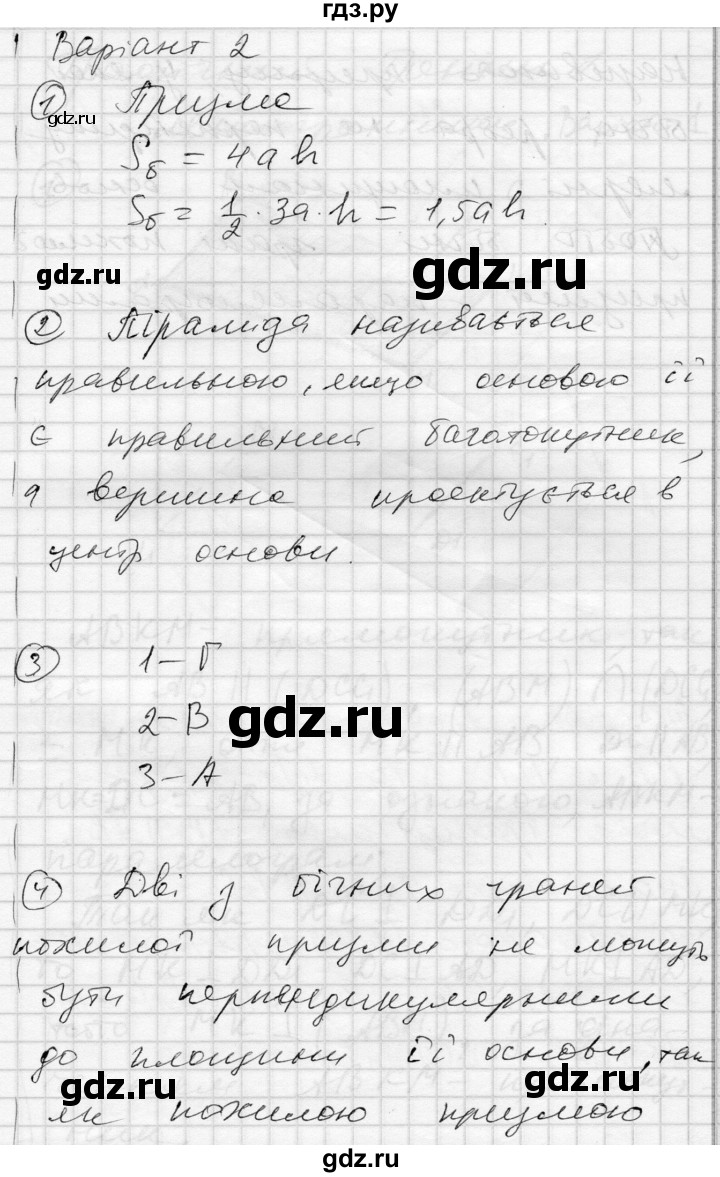 гдз.ру
Варіант 2
① Призма
Sб = 4ah
Sб = 1/2 · 3a · h = 1,5ah.
② Піраміда називається
правильною, якщо основою її
є правильний багатокутник,
а вершина проектується в
центр основи.
③ 1 – Г
2 – В
3 – А
④ Дві з бічних граней
похилої призми не можуть
бути перпендикулярними
до площини її основи, так
як похилою призмою
gdz.ru
gdz.ru
gdz.ru
gdz.ru
gdz.ru
gdz.ru
gdz.ru
gdz.ru